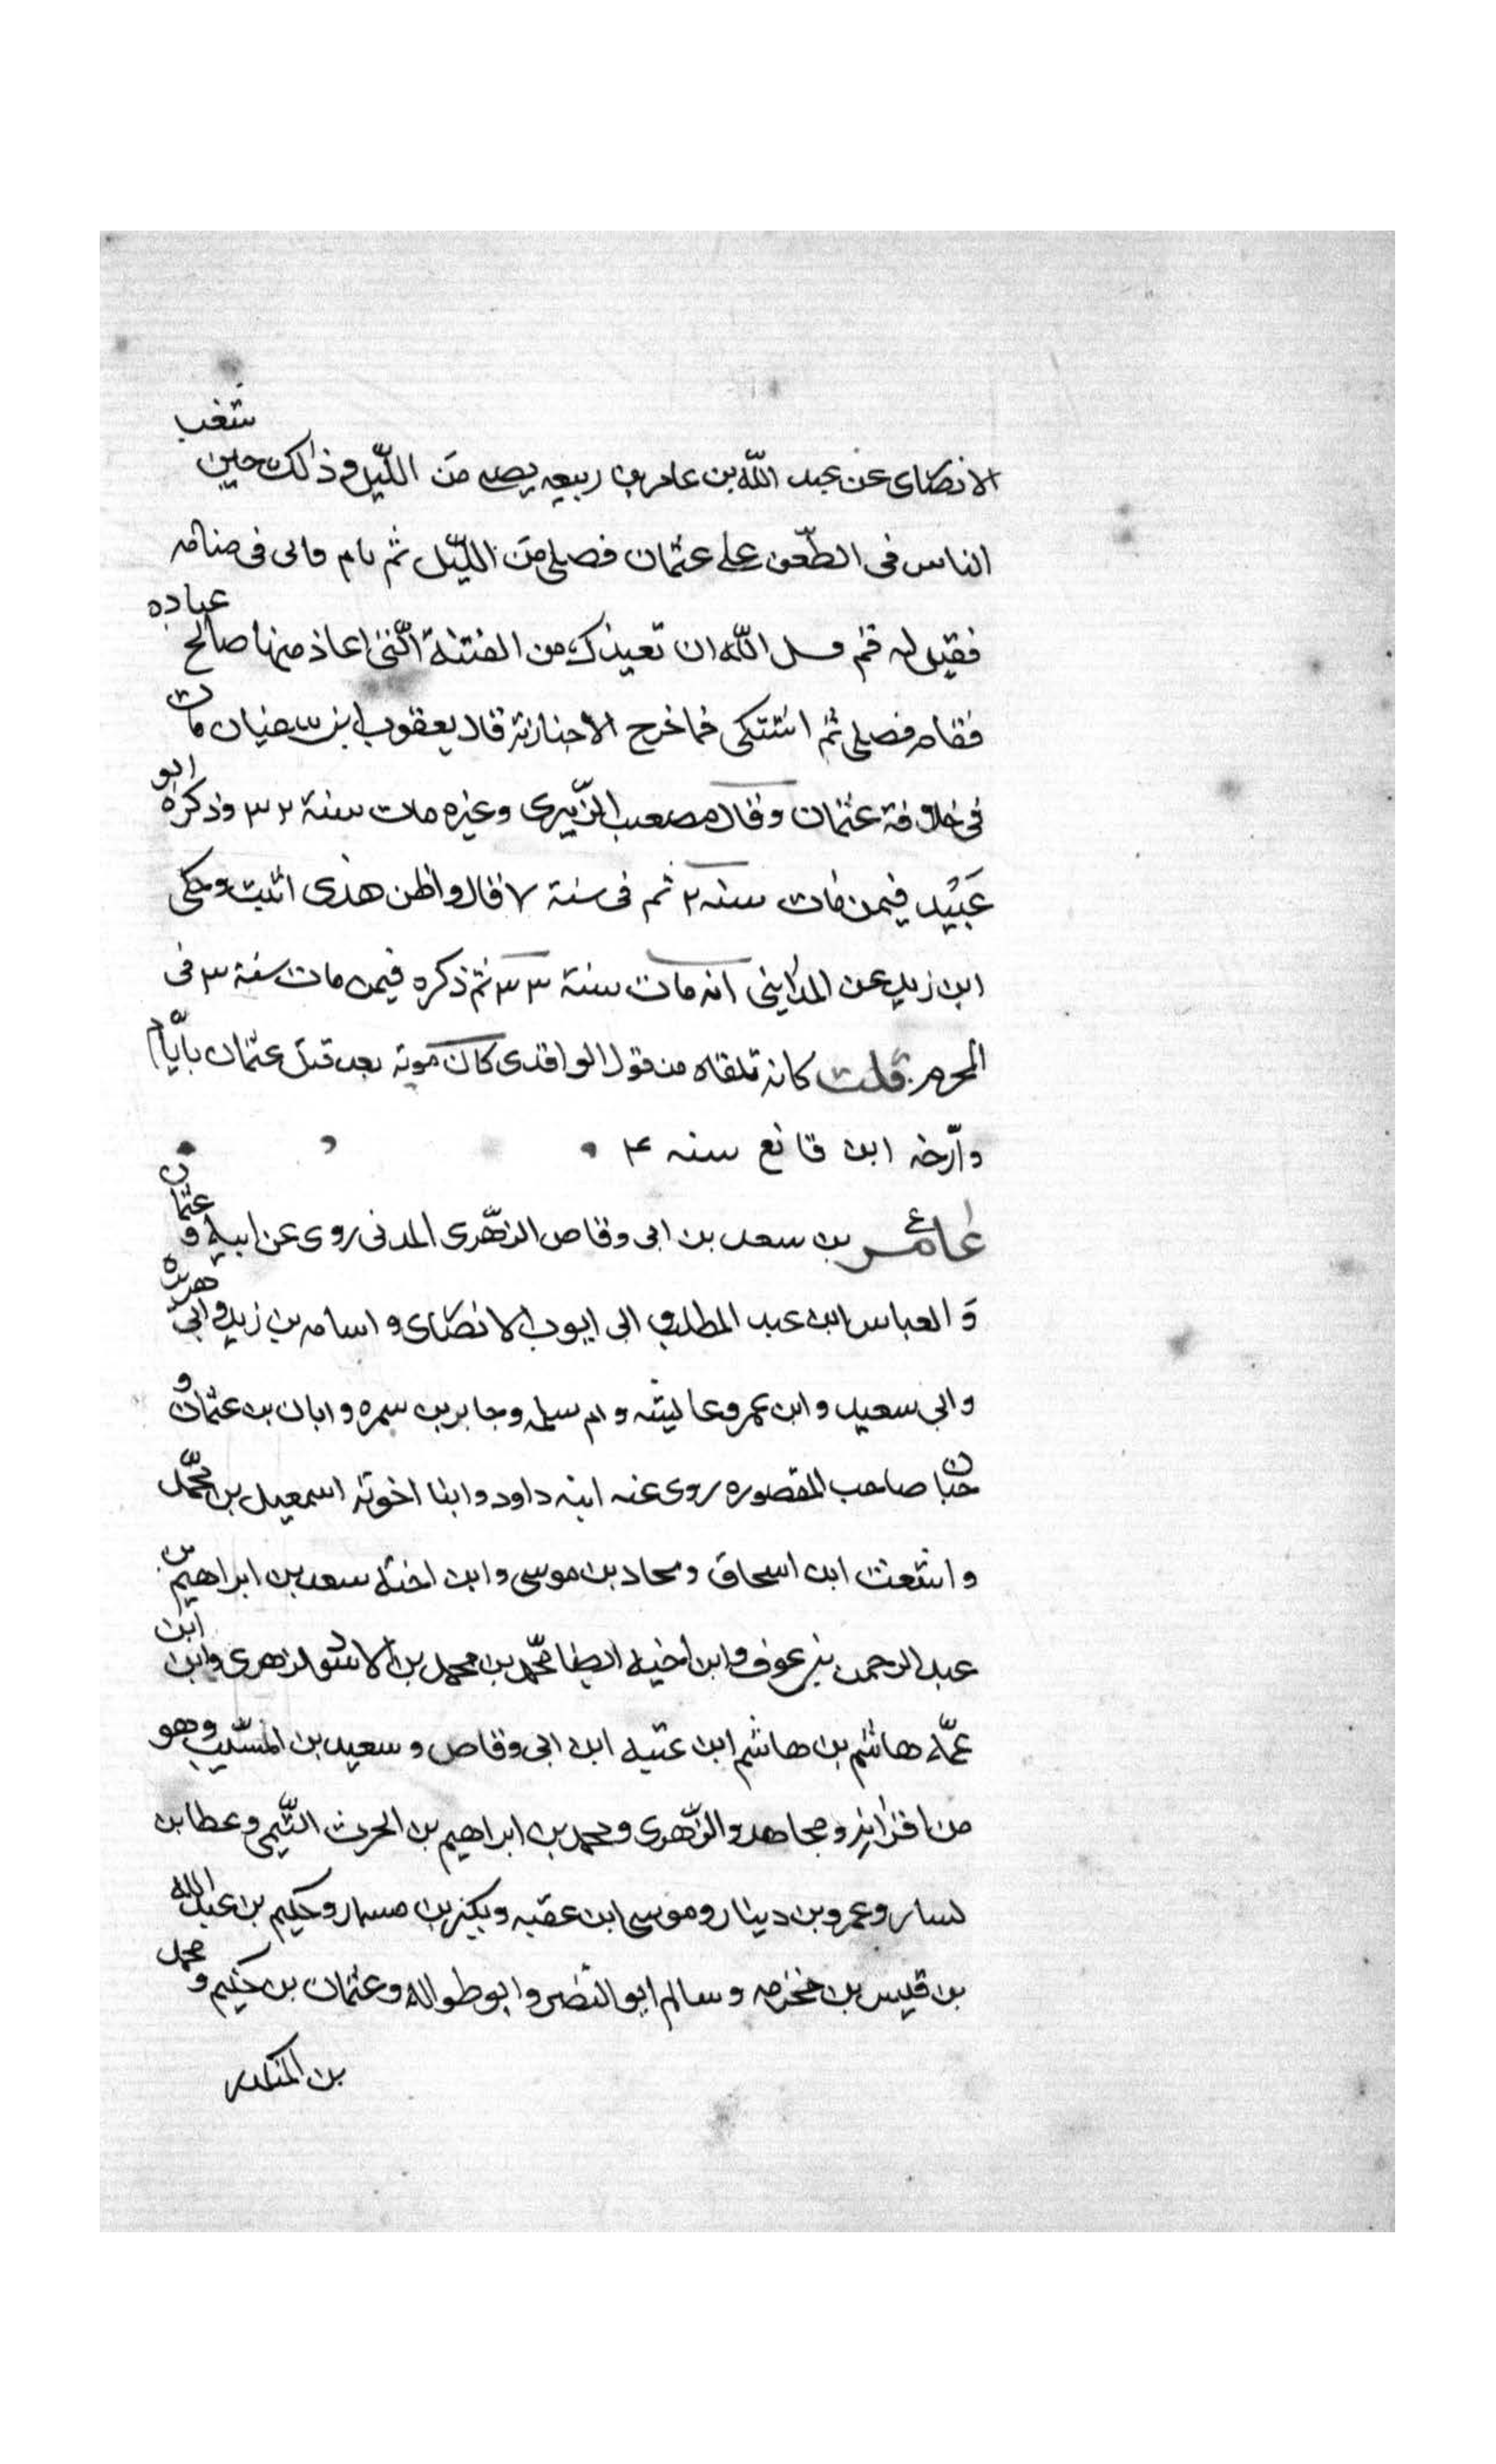 الانصاری عن عبد اللّه بن عامر بن ربیعه یصلی من اللّیل و ذالک حین شغب
الناس فی الطّعن علی عثمان فصلی من اللّیل ثم نام فاتی فی منامه
فقیل له قم فسل اللّه ان تعیذک من الفتنة الّتی اعاذ منها صالح عباده
فقام فصلی ثم اشتکی فما خرج الا جنازته قال یعقوب ابن سفیان مات
فی خلافة عثمان وقال مصعب الزّبیری وغیره مات سنة ۳۲ وذکره ابو
عُبَیْد فیمن مات سنه ۳۲ ثم فی سنة ۳۷ قال واظن هذی اثبت وحکی
ابن زبد عن المداینی انه مات سنة ۳۳ ثم ذکره فیمن مات سنة ۳ فی
المحرم قلت کانه تلقاه من قول الواقدی کان موته بعد قتل عثمان بایّام
وارّخه ابن قانع سنه ۴
عامر بن سعد بن ابی وقاص الزّهری المدنی روی عن ابیه وعثمان
وَ العباس ابن عبد المطلب و ابی ایوب الانصاری و اسامه بن زید وابی هریره
وابی سعید وابن عمر وعایشه وام سلمه وجابر بن سمره وابان بن عثمان و
خبان صاحب المقصوره روی عنه ابنه داود وابنا اخوته اسمعیل بن محمّد
واشعث ابن اسحاق وبجاد بن موسی وابن اخته سعد بن ابراهیم بن
عبد الرحمن بن عوف وابن اخیه ایضا محمّد بن محمد بن الاسود الزهری وابن ابن
عمّه هاشم بن هاشم ابن عتبه ابن ابی وقاص وسعید بن المسّیب وهو
من اقرانه ومجاهد والزّهری ومحمد بن ابراهیم بن الحرث التّیمی وعطا بن
یسار وعمرو بن دینار وموسی ابن عقبه وبکیر بن مسمار وحکیم بن عبد الله
بن قیس بن مخرمه وسالم ابو النّضر وابو طواله وعثمان بن حکیم ومحمد
بن المنکدر